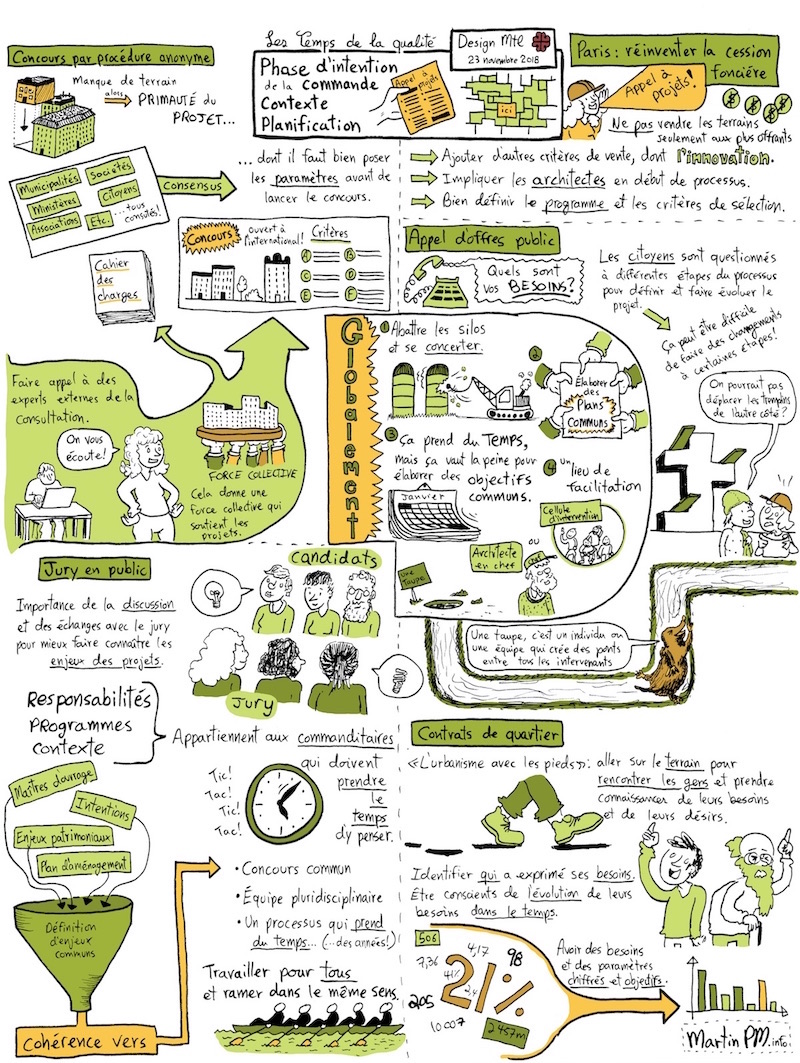 Les Temps de la qualité
Design Mtl
23 novembre 2018
Phase d'intention
de la commande
Contexte
Planification
Appel
projets
ici
Concours par procédure anonyme
Manque de terrain
alors
PRIMAUTÉ DU
PROJET...
Municipalités
Sociétés
Ministères
Citoyens
Associations
Etc.
...tous
consultés!
Consensus
...dont il faut bien poser
les paramètres avant de
lancer le concours.
Cahier
des
charges
Concours
ouvert à
l'international!
Critères
A
B
C
D
E
F
Faire appel à des
experts externes de la
consultation.
On vous
écoute!
FORCE COLLECTIVE
Cela donne une
force collective qui
soutient les
projets.
Paris : réinventer la cession
foncière
Appel à
projets!
$ $ $ $
Ne pas vendre les terrains
seulement aux plus offrants
Ajouter d'autres critères de vente, dont l'innovation.
Impliquer les architectes en début de processus.
Bien définir le programme et les critères de sélection.
Appel d'offres public
Quels sont
vos BESOINS?
Les citoyens sont questionnés
à différentes étapes du processus
pour définir et faire évoluer le
projet.
Ça peut être difficile
de faire des changements
à certaines étapes!
On pourrait pas
déplacer les tremplins
de l'autre côté?
Globalement
1 Abattre les silos
et se concerter.
2
Élaborer
des
Plans
communs
3 Ça prend du TEMPS,
mais ça vaut la peine pour
élaborer des objectifs
communs.
Janvier
4 Un
lieu de
facilitation
Cellule
d'intervention
ou
Architecte
en chef
CHEF
une
taupe
Une taupe, c'est un individu ou
une équipe qui crée des ponts
entre tous les intervenants
Jury en public
Importance de la discussion
et des échanges avec le jury
pour mieux faire connaître les
enjeux des projets.
Candidats
Jury
Responsabilités
Programmes
Contexte
Appartiennent aux commanditaires
qui doivent
prendre
le
temps
d'y penser.
Tic!
Tac!
Tic!
Tac!
Maîtres d'ouvrage
Intentions
Enjeux patrimoniaux
Plan d'aménagement
Définition
d'enjeux
communs
Cohérence vers
• Concours commun
• Équipe pluridisciplinaire
• Un processus qui prend
du temps... (...des années!)
Travailler pour tous
et ramer dans le même sens.
Contrats de quartier
«L'urbanisme avec les pieds» : aller sur le terrain pour
rencontrer les gens et prendre
connaissances de leurs besoins
et de leurs désirs.
Identifier qui a exprimé ses besoins.
Être conscients de l'évolution de leurs
besoins dans le temps.
506
4,17
98
7,36
41%
21%
2,4
205
10 007
2 457m
Avoir des besoins
et des paramètres
chiffrés et objectifs.
Martin PM.info